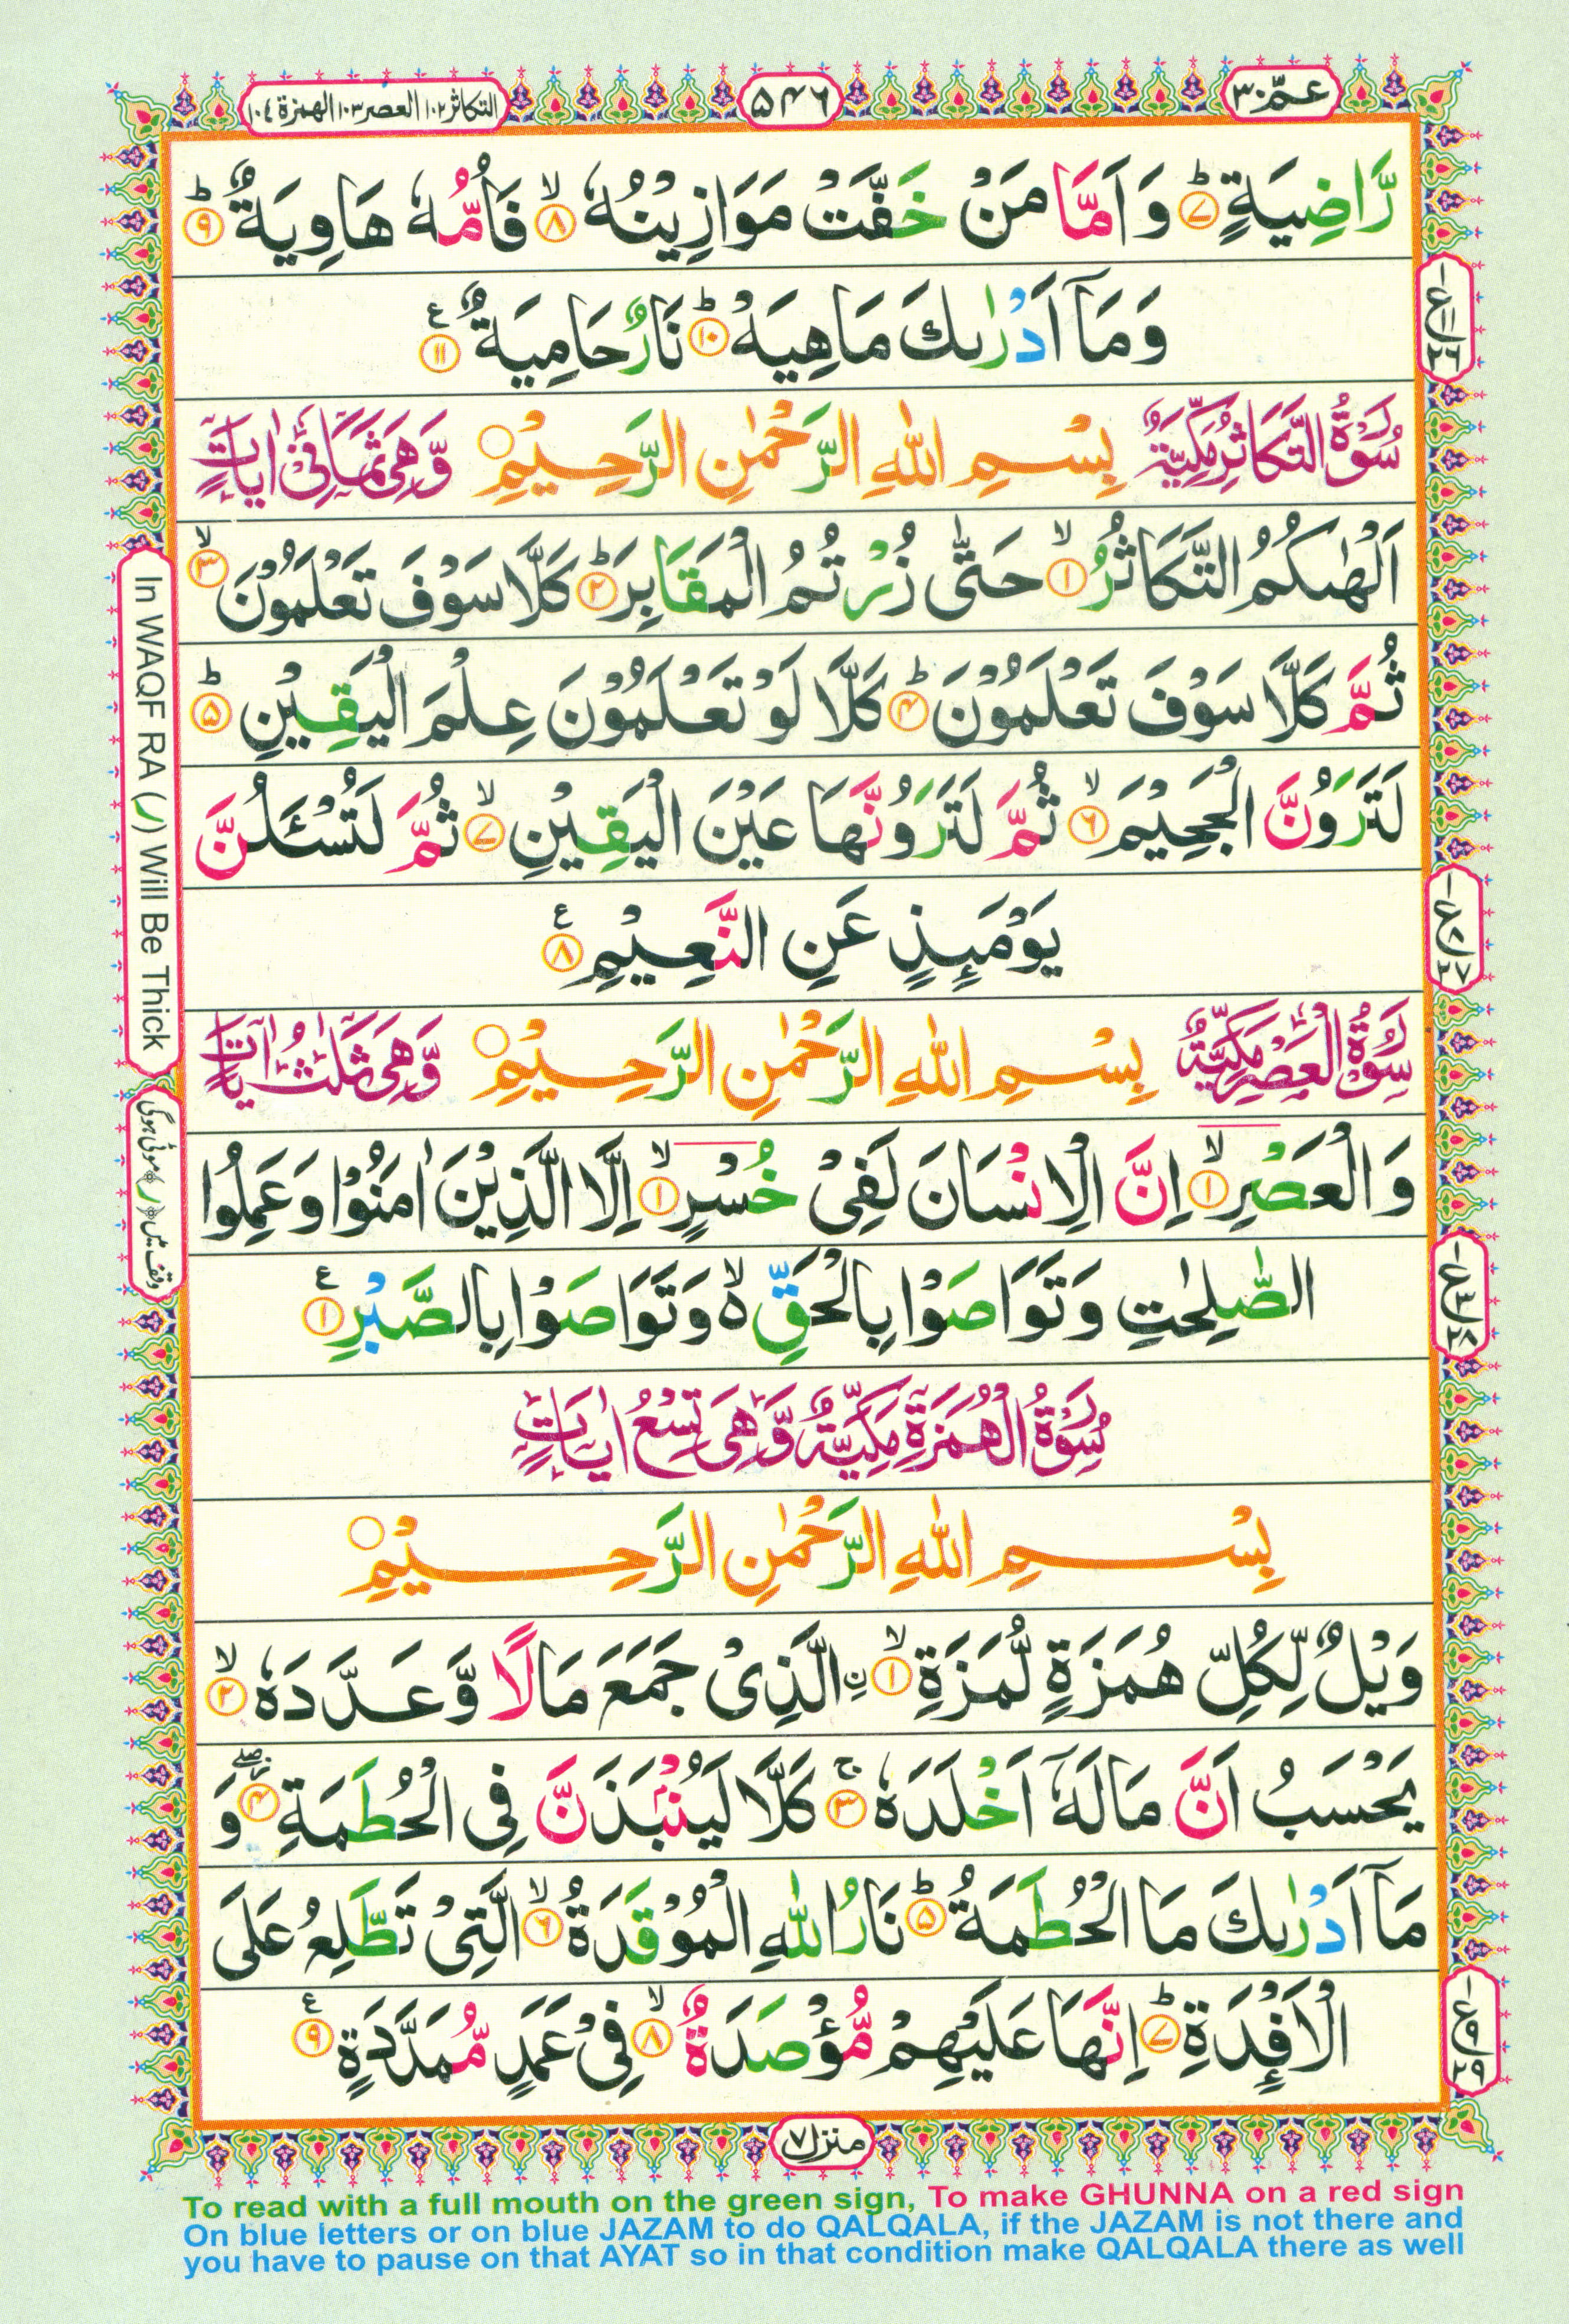 عمّ ٣٠
۵۴۶
التكاثر ١٠٢ العصر ١٠٣ الهمزة ١٠٤
رَّاضِيَةٍ ؕ ۷ وَ اَمَّا مَنْ خَفَّتْ مَوَازِيْنُهٗ ۙ ۸ فَاُمُّهٗ هَاوِيَةٌ ؕ ۹
وَمَاۤ اَدْرٰىكَ مَاهِيَهْ ؕ ۱۰ نَارٌ حَامِيَةٌ ۱۱ ع
سُوْرَةُ التَّكَاثُرِ مَكِّيَّةٌ بِسْمِ اللّٰهِ الرَّحْمٰنِ الرَّحِيْمِ ○ وَّهِىَ ثَمَانِىْ اٰيَاتٍ
اَلْهٰىكُمُ التَّكَاثُرُ ۙ ۱ حَتّٰى زُرْتُمُ الْمَقَابِرَ ؕ ۲ كَلَّا سَوْفَ تَعْلَمُوْنَ ۙ ۳
ثُمَّ كَلَّا سَوْفَ تَعْلَمُوْنَ ؕ ۴ كَلَّا لَوْ تَعْلَمُوْنَ عِلْمَ الْيَقِيْنِ ؕ ۵
لَتَرَوُنَّ الْجَحِيْمَ ۙ ۶ ثُمَّ لَتَرَوُنَّهَا عَيْنَ الْيَقِيْنِ ۙ ۷ ثُمَّ لَتُسْـَٔلُنَّ
يَوْمَىِٕذٍ عَنِ النَّعِيْمِ ۸ ع
سُوْرَةُ الْعَصْرِ مَكِّيَّةٌ بِسْمِ اللّٰهِ الرَّحْمٰنِ الرَّحِيْمِ ○ وَّهِىَ ثَلٰثُ اٰيَاتٍ
وَ الْعَصْرِ ۙ ۱ اِنَّ الْاِنْسَانَ لَفِىْ خُسْرٍ ۙ ۱ اِلَّا الَّذِيْنَ اٰمَنُوْا وَ عَمِلُوا
الصّٰلِحٰتِ وَ تَوَاصَوْا بِالْحَقِّ ۙ۬ وَ تَوَاصَوْا بِالصَّبْرِ ۱ ع
سُوْرَةُ الْهُمَزَةِ مَكِّيَّةٌ وَّهِىَ تِسْعُ اٰيَاتٍ
بِسْمِ اللّٰهِ الرَّحْمٰنِ الرَّحِيْمِ ○
وَيْلٌ لِّكُلِّ هُمَزَةٍ لُّمَزَةِ ۙ ۱ ن ِالَّذِىْ جَمَعَ مَالًا وَّ عَدَّدَهٗ ۙ ۲
يَحْسَبُ اَنَّ مَالَهٗۤ اَخْلَدَهٗ ۚ ۳ كَلَّا لَيُنْۢبَذَنَّ فِى الْحُطَمَةِ ۖ ۴ وَ
مَاۤ اَدْرٰىكَ مَا الْحُطَمَةُ ؕ ۵ نَارُ اللّٰهِ الْمُوْقَدَةُ ۙ ۶ الَّتِىْ تَطَّلِعُ عَلَى
الْاَفْـِٕدَةِ ؕ ۷ اِنَّهَا عَلَيْهِمْ مُّؤْصَدَةٌ ۙ ۸ فِىْ عَمَدٍ مُّمَدَّدَةٍ ۹ ع
منزل ۷
In WAQF RA (ر) Will Be Thick
وقف میں ﴿ر﴾ موٹی ہوگی
To read with a full mouth on the green sign, To make GHUNNA on a red sign
On blue letters or on blue JAZAM to do QALQALA, if the JAZAM is not there and
you have to pause on that AYAT so in that condition make QALQALA there as well